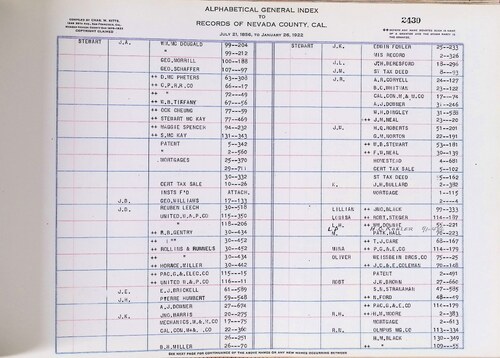 ALPHABETICAL GENERAL INDEX
TO
RECORDS OF NEVADA COUNTY, CAL.
JULY 21, 1856, TO JANUARY 26, 1922
2430
COMPILED BY CHAS. W. KITTS.
COPYRIGHT CLAIMED
STEWART J.A. WM.MC DOUGALD 99--204
" 99--212
GEO.MORRILL 100--188
GEO.SCHAFFER 107--97
++ D.MC PHETERS 63--308
++ C.P.R.R.CO 66--17
++ " 72--49
++ R.B.TIFFANY 67--56
++ OCK CHEUNG 77--59
++ STEWART MC KAY 77--469
++ MAGGIE SPENCER 94--232
++ S.MC KAY 131--343
PATENT 5--342
" 2--560
MORTGAGES 25--370
29--711
30--332
CERT TAX SALE 10--26
INSTS F'D ATTACH.
J.B. GEO.WILLIAMS 17--133
J.D. REUBEN LEECH 30--518
UNITED.W.&P.CO 115--350
" 118--206
++ M.B.GENTRY 30--434
++ " 30--452
++ ROLLINS & RUNNELS 30--452
++ " 30--434
++ HORACE.MILLER 30--442
++ PAC.G.&ELEC.CO 115--15
++ UNITED W.&P.CO 116--11
J.E. E.J.BRICKELL 61--589
J.H. PIERRE HUMBERT 59--548
A.J.DONNER 27--674
J.K. JNO.HARRIS 20--275
MECHANICS.M.&M.CO 17--75
CAL.CON.M&M. CO 22--360
" 26--251
B.H.MILLER 26--70
STEWART J.K. EDWIN FOWLER 25--233
MIS RECORD 2--326
J.L. J.H.BERESFORD 16--296
J.M. ST TAX DEED 8--93
J.R. A.R.CORYELL 24--127
B.C.WHITING 23--122
CAL.CON.M&M.CO 17--74
A.J.DONNER 31--246
W.H.BINGLEY 31--588
++ J.M.NEAL 23--20
J.D. H.Q.ROBERTS 51--201
D.M.NORTON 22--191
++ W.B.STEWART 53--181
++ F.H.NEAL 30--139
HOMESTEAD 4--681
CERT TAX SALE 5--102
ST TAX DEED 75--162
K. J.H.BULLARD 2--382
MORTGAGE 1--115
" 2--4
LILLIAN JNO.BLACK 99--333
LOUISA ++ ROBT.STEGER 114--187
PATK.HALL 76--223
++ T.J.CARE 68--167
NINA ++ P.G.&E.CO 114--179
OLIVER REISSBEIN BROS.CO 75--25
++ J.C.&E.COLEMAN 70--148
PATENT 2--491
ROBT J.H.BROWN 27--660
S.S.STRAHAN 47--595
++ N.FORD 48--49
++ PAC.G.&E.CO 114--179
R.H. ++ H.M.MOORE 2--383
MORTGAGE 2--613
R.S. OLYMPUS MG.CO 113--334
W.M.BLACK 130--349
++ " 109--55
SEE NEXT PAGE FOR CONTINUANCE OF THE ABOVE NAMES OR ANY NEW NAMES OCCURRING BETWEEN